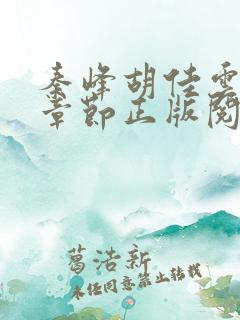 秦峰胡佳雲
章節正版閱
葛浩新
未经同意禁止转载